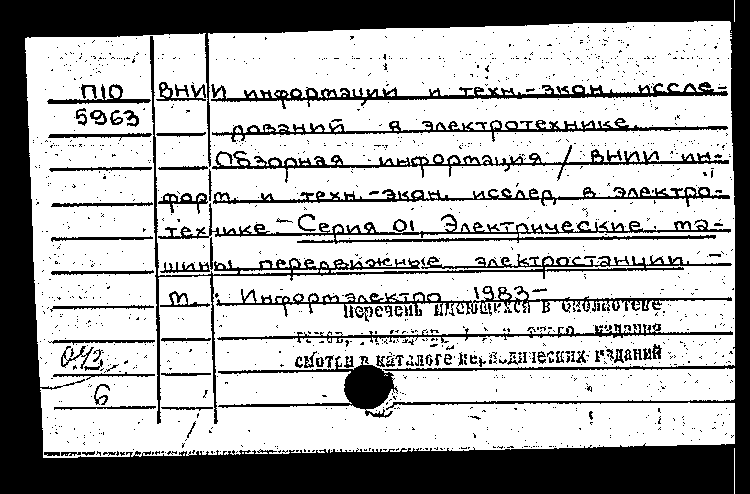 П10 ВНИИ информации и техн.-экон. иссле-
5963 дований в электротехнике.
Обзорная информация / ВНИИ ин-
форм. и техн.-экон. исслед. в электро-
технике – Серия 01, Электрические ма-
шины, передвижные электростанции. –
М. : Информэлектро 1983–
Перечень имеющихся в библиотеке
этого издания
смотри в каталоге периодических изданий
6